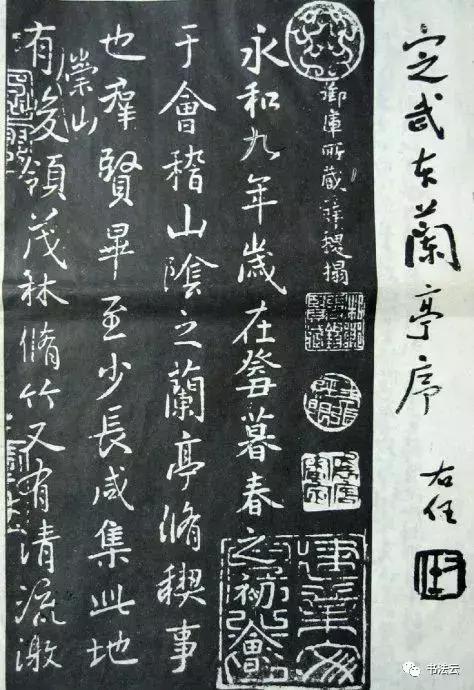 定武本蘭亭序
右任
御庫所藏薛稷搨
永和九年歲在癸丑暮春之初會
于會稽山陰之蘭亭脩稧事
也羣賢畢至少長咸集此地
有崇山峻領茂林脩竹又有清流激
书法云